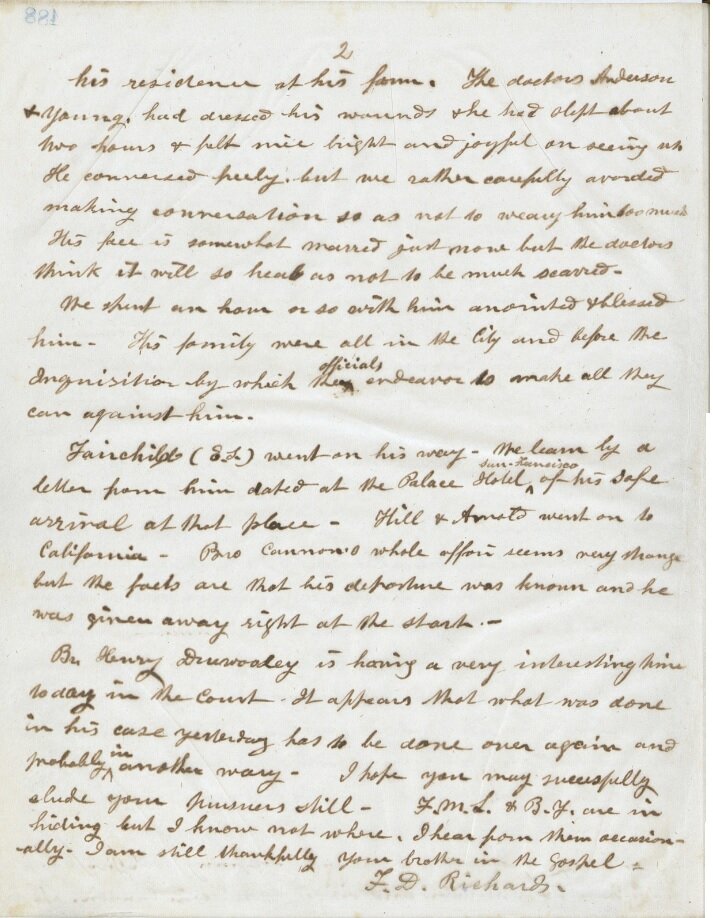 2
his residence at his farm. The doctors Anderson
& Young, had dressed his wounds & he had slept about
two hours & felt nice bright and joyful on seeing us
He conversed freely. but we rather carefully avoided
making conversation so as not to weary him too much
His face is somewhat marred just now but the doctors
think it will so heal as not to be much scarred-
We spent an hour or so with him anointed & blessed
him- His family were all in the City and before the
Inquisition by which the officials endeavor to make all they
can against him.
Fairchilds (E.L) went on his way- We learn by a
letter from him dated at the Palace Hotel, San-Fancisco of his safe
arrival at that place- Hill & Arnold went on to
California- Bro Cannons whole affair seems very strange
but the facts are that his departure was known and he
was given away right at the start.-
Br. Henry Dinwoodey is having a very interesting time
today in the Court. It appears that what was done
in his case yesterday has to be done over again and
probably in another way- I hope you may sucessfully
elude your pursuers still- F.M.L. & B.Y. are in
hiding but I know not where. I hear from them occasion-
-ally- I am still thankfully your brother in the Gospel-
F. D. Richards.
188